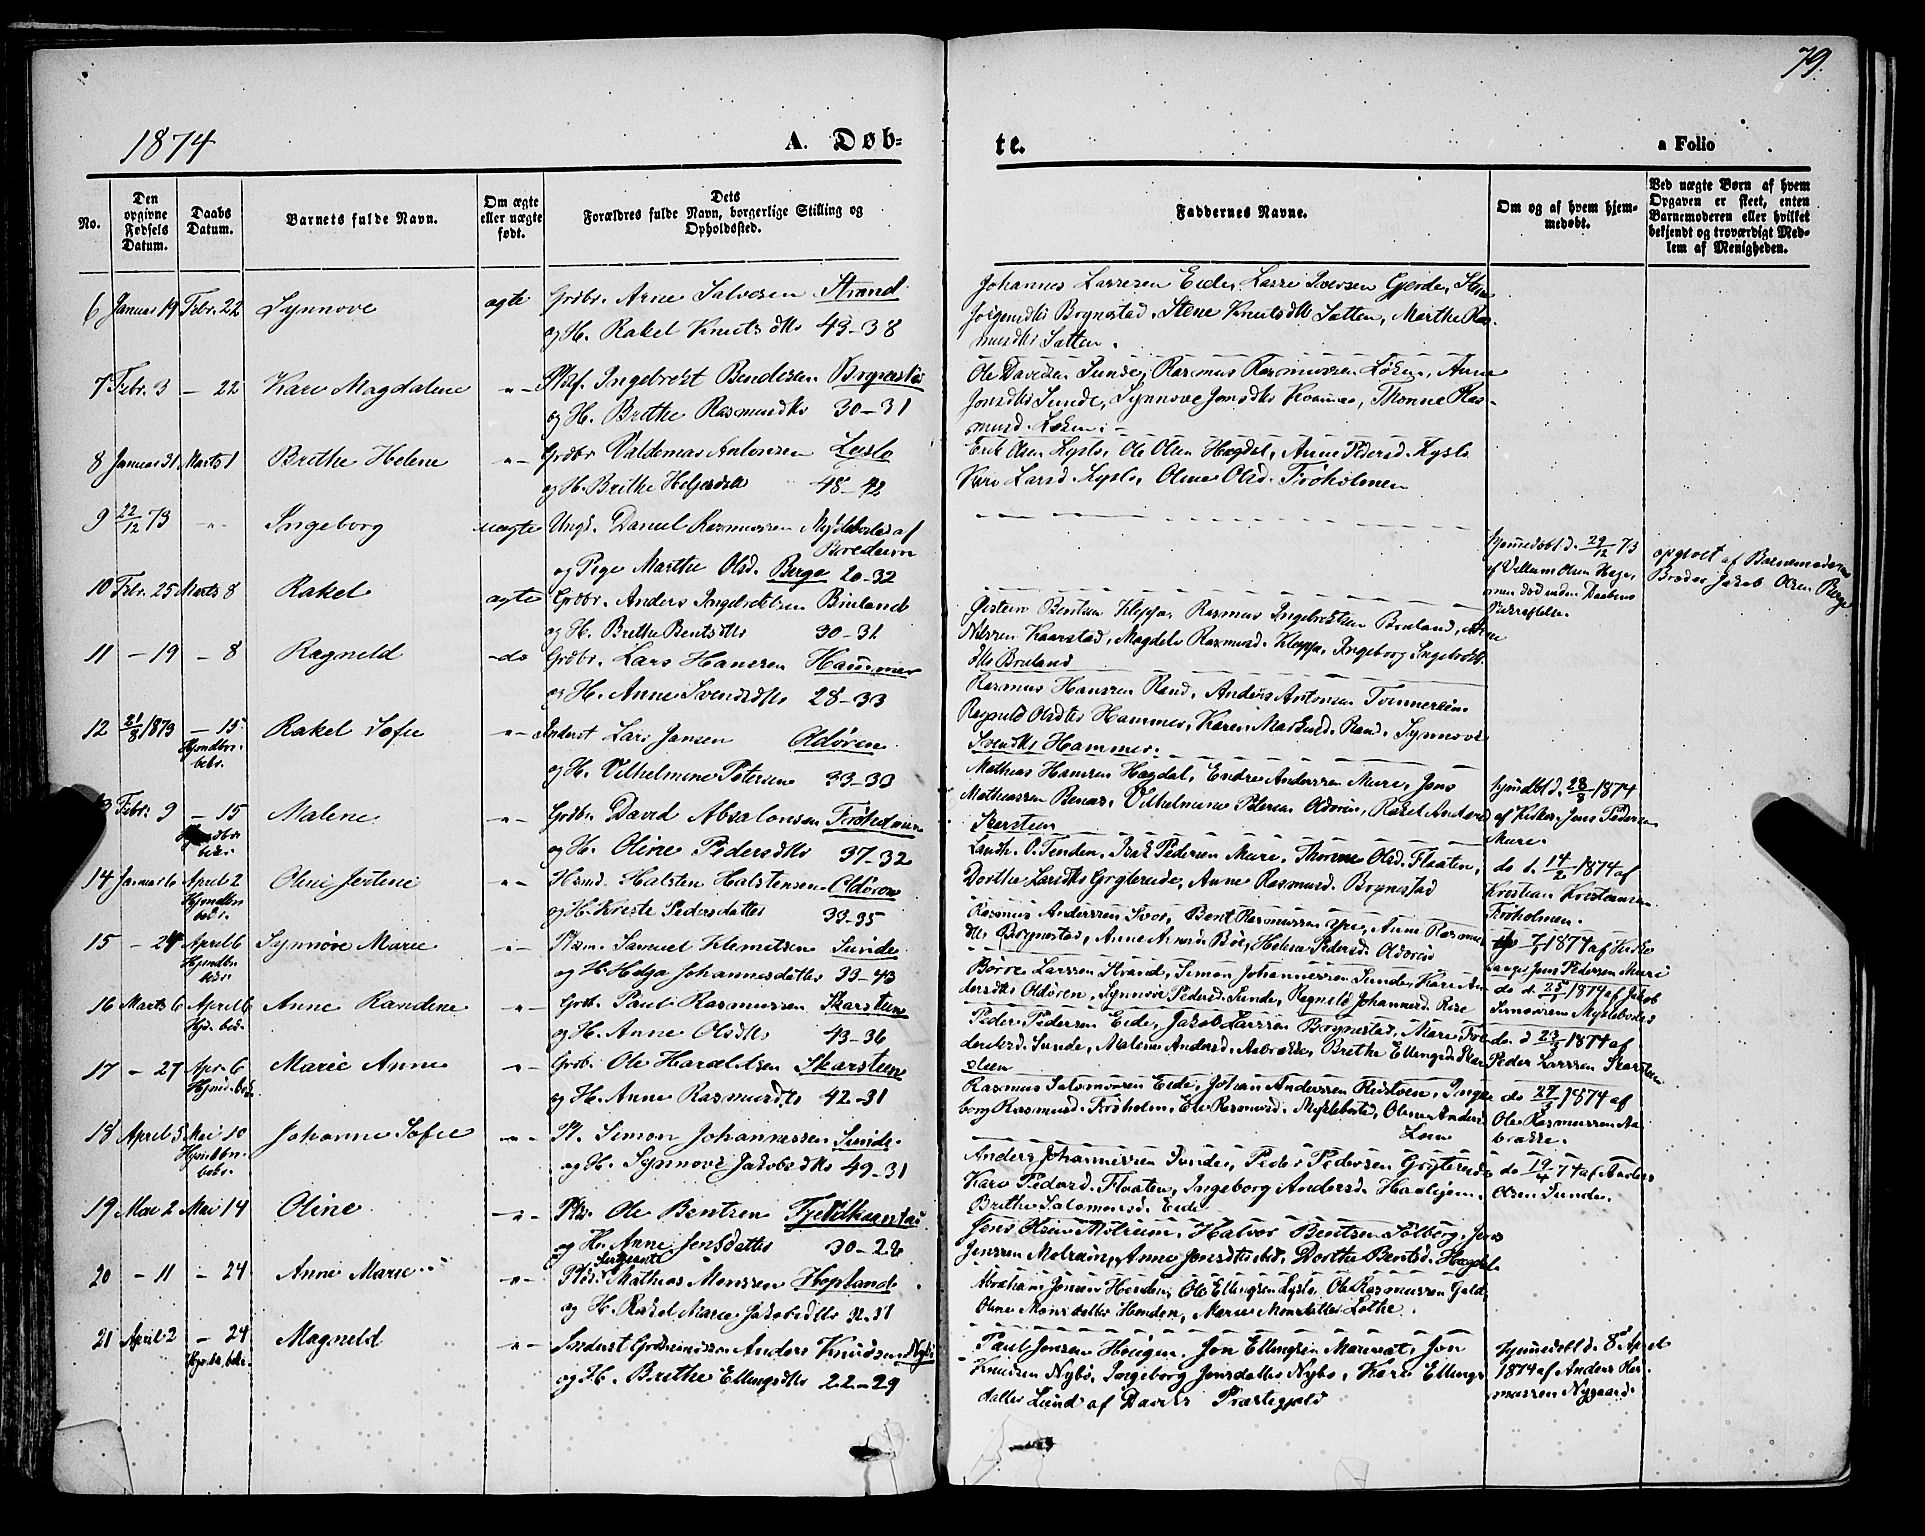 79.
1874
A. Døb-
te.
a Folio
No.
Den opgivne Fødsels Datum.
Daabs Datum.
Barnets fulde Navn.
Om ægte eller uægte født.
Dets Forældres fulde Navn, borgerlige Stilling og Opholdssted.
Faddernes Navne.
Om og af hvem hjemmedøbt.
Ved uægte Børn af hvem Opgaven er skeet, enten Barnemoderen eller hvilket bekjendt og troværdigt Medlem af Menigheden.
6 Januar 19 Febr. 22 Synnove ægte Grdbr. Arne Salvesen Strand
og H. Rakel Knutsdtr 43-38
Johannes Larsen Eide, Lasse Iversen Gjerde,
Brynestad, Stene Knutsdtr Satten, Marthe Ras-
musdtr Satten.
7 Febr. 3 - 22 Kari Magdalene -"- Ingebrekt Bendixen Brynestad
og H. Brithe Rasmusdtr 30-31
Ole Davidsen Sunde, Rasmus Rasmussen Løken, Anne
Jonsdtr Sunde, Synnove Jonsdtr Thonne Ras-
musd. Løken. -
8 Januar 31 Marts 1 Brithe Helene -"- Grdbr Valdemar Antonsen Lyslo
og H. Brithe Helgesdtr 48-42
Erik Olsen Lyslo, Ole Olsen Hægdal, Anne Pedersd. Lyslo
Kari Larsd Lyslo, Oline Olsd. Frøholmen
9 22/12 73 -"- Ingeborg uægte Ungk. Daniel Rasmussen Myklebostad af
Bredeim
og Pige Marthe Olsd. Berge 20-32
hjemmedøbt d. 29/12 73
af Villum Olsen Hage,
men død uden Daabens
opgivet af Barnemoderens
Broder Jakob Olsen Berge
10 Febr. 25 Marts 8 Rakel ægte Grdbr. Anders Ingebrektsen Bruland
og H. Brithe Bentsdtr 30-31
Øistein Bentsen Kleppe, Rasmus Ingebrektsen Bruland, Arne
Nilssen Kaarstad, Magdele Rasmusd. Kleppe, Ingeborg Ingebrekts-
dtr Bruland
11 - 19 - 8 Ragneld -do Grdbr. Lars Hanssen Hammer
og H. Anne Svendsdtr 28-33
Rasmus Hanssen Rand, Anders Antonsen
Ragneld Olsdtr Hammer, Karen Rand, Synnove
Svendsdtr Hammer.
12 21/8 1873 - 15 Rakel Sofie -"- Inderst Lars Jansen Oldøren
Hjmdbn.
bekr.
og H. Vilhelmine Petersen 33-30
Mathias Hansen Hægdal, Endre Anderssen Muri, Jens
Mathiassen Benes, Vilhelmine Petersen Oldøren, Rakel Andersd
Skarsteen
hjmdbt d. 28/8 1874
af Kirkes. Jens Pedersen
Muri.
13 Febr. 9 - 15 Malene -"- Grdbr David Absalonsen Frøholmen
bekr.
og H. Oline Pedersdtr 37-32
Landh. O. Tenden, Isak Pedersen Muri, Thonne Olsd. Flaaten,
Dorthe Larsdtr Gryterude, Anne Rasmusd. Brynestad
do d. 14/2 1874 af
Kristian Kristiansen
Frøholmen.
14 Januar 6 April 2 Oline Jertine -"- Hsmd Halsten Halstensen Oldøren
Hjmdbn
bekr.
og H. Kirste Pedersdatter 33-35
Rasmus Anderssen Svor, Bent Rasmussen Yri, Anne Rasmus
dtr Brynestad, Anne Arnesd. Bøe, Helene Pedersd. Oldøren
7/1 1874 af Kirke
sanger Jens Pedersen Muri
15 - 24 April 6 Synnøve Marie -"- Samuel Klemetsen Sunde
Hjmdbn
bekr.
og H. Helga Johannesdatter 33-43
Børre Larssen Strand, Simon Johannessen Sunde, Kari An-
dersdtr Oldøren, Synnøve Pedersd. Sunde, Ragneld Johannesd. Rise
do d. 25/1 1874 af Jakob
Simonsen Myklebostad
16 Marts 6 April 6 Anne Randine -"- Grdb. Paul Rasmussen Skarsteen
Hjd. bek.
og H. Anne Olsdtr 43-36
Peder Pedersen Eide, Jakob Larssen Brynestad, Mari Fre-
deriksd. Sunde, Malene Andersd. Aabrække, Brithe Ellingsd. Skar-
steen
do. d 23/3 1874 af
Peder Larssen Skarsteen
17 - 27 Apr. 6 Marie Anne -"- Grdb. Ole Haraldsen Skarsteen
Hjmd. bek.
og H. Anne Rasmusdtr 42-31
Rasmus Salomonsen Eide, Johan Anderssen Ristoen, Inge-
borg Rasmusd. Frøholm, Eli Rasmusd. Myklebostad, Oline Andersd
Loen
do 27/3 1874 af
Ole Rasmussen Aa-
brække.
18 April 5 Mai 10 Johanne Sofie -"- Pl. Simon Johannessen Sunde
Hjmdbn.
bekr.
og H. Synnove Jakobsdtr 49-31
Anders Johannessen Sunde, Peder Pedersen Gryterude
Kari Pedersd. Flaaten, Ingeborg Andersd.
Brithe Salomonsd. Eide
do 19/4 74 af Anders
Olsen Sunde.
19 Mai 2 Mai 14 Oline -"- Plds. Ole Bentsen
og H. Anne Jensdatter 30-28
Jens Olsen Melheim, Halvor Bentsen Solborg, Jens
Jenssen Melheim, Anne Jonsdtr Dorthe Bentsd. Hægdal
20 - 11 - 24 Anne Marie -"- Sergeant Mathias Monssen Hopland
og H. Rakel Marie Jakobsdtr 32-31
Abraham Jonsen Henden, Ole Ellingsen Lyslo, Ole Rasmussen
Oline Monsdatter Henden, Marie Monsdatter Lothe.
21 April 2 - 24 Magneld -"- Inderst Anders Knudsen Nybø
bekr.
og H. Brithe Ellingsdtr 22-29
Paul Jonsen Hougen. Jon Ellingsen Jon
Knudsen Nybø, Ingeborg Jonsdatter Nybø, Kari Ellings-
datter Lund af Davik Præstegjeld
hjemmedøbt d. 8 April
1874 af Anders Ras-
mussen Nygaard.